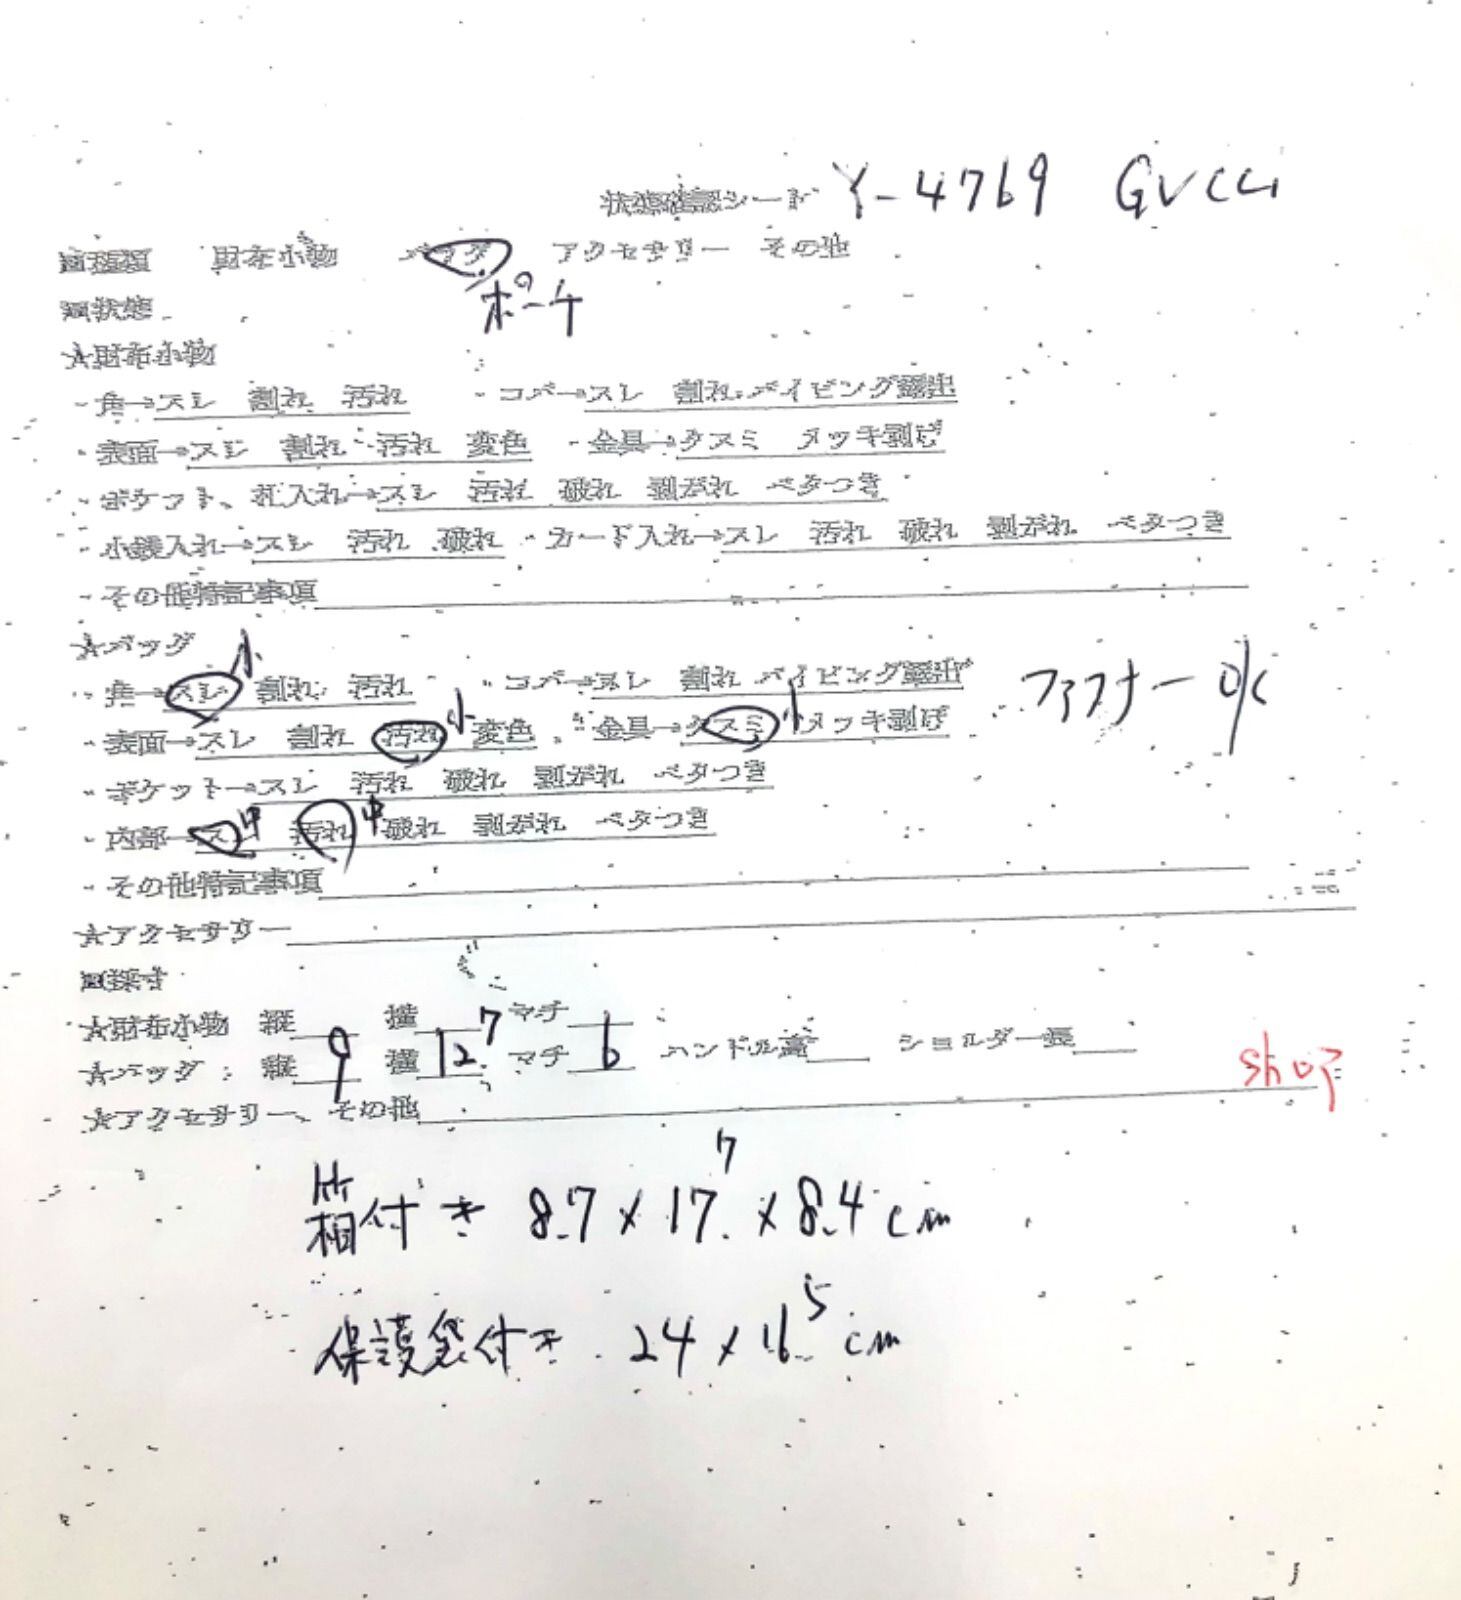 状態確認シート Y-4769 GUCCI
■種類 財布小物 バッグ アクセサリー その他
ポーチ
■状態
★財布小物
・角→スレ 割れ 汚れ ・コバ→スレ 割れ パイピング露出
・表面→スレ 割れ 汚れ 変色 ・金具→クスミ メッキ剥げ
・ポケット、札入れ→スレ 汚れ 破れ 剥がれ ベタつき
・小銭入れ→スレ 汚れ 破れ ・カード入れ→スレ 汚れ 破れ 剥がれ ベタつき
・その他特記事項
★バッグ
・角→スレ小 割れ 汚れ ・コバ→スレ 割れ パイピング露出 ファスナーOK
・表面→スレ 割れ 汚れ小 変色 ・金具→クスミ小 メッキ剥げ
・ポケット→スレ 汚れ 破れ 剥がれ ベタつき
・内部→スレ中 汚れ中 破れ 剥がれ ベタつき
・その他特記事項
★アクセサリー
■採寸
★財布小物 縦 横 マチ
★バッグ: 縦 9 横 12.7 マチ 6 ハンドル高 ショルダー長
★アクセサリー、その他 shop
箱付き 8.7×17.7×8.4cm
保護袋付き 24×16.5cm